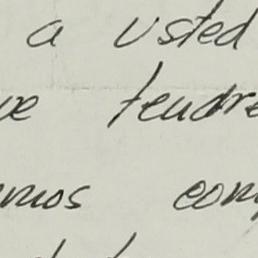 a usted
ve tendre
mos com